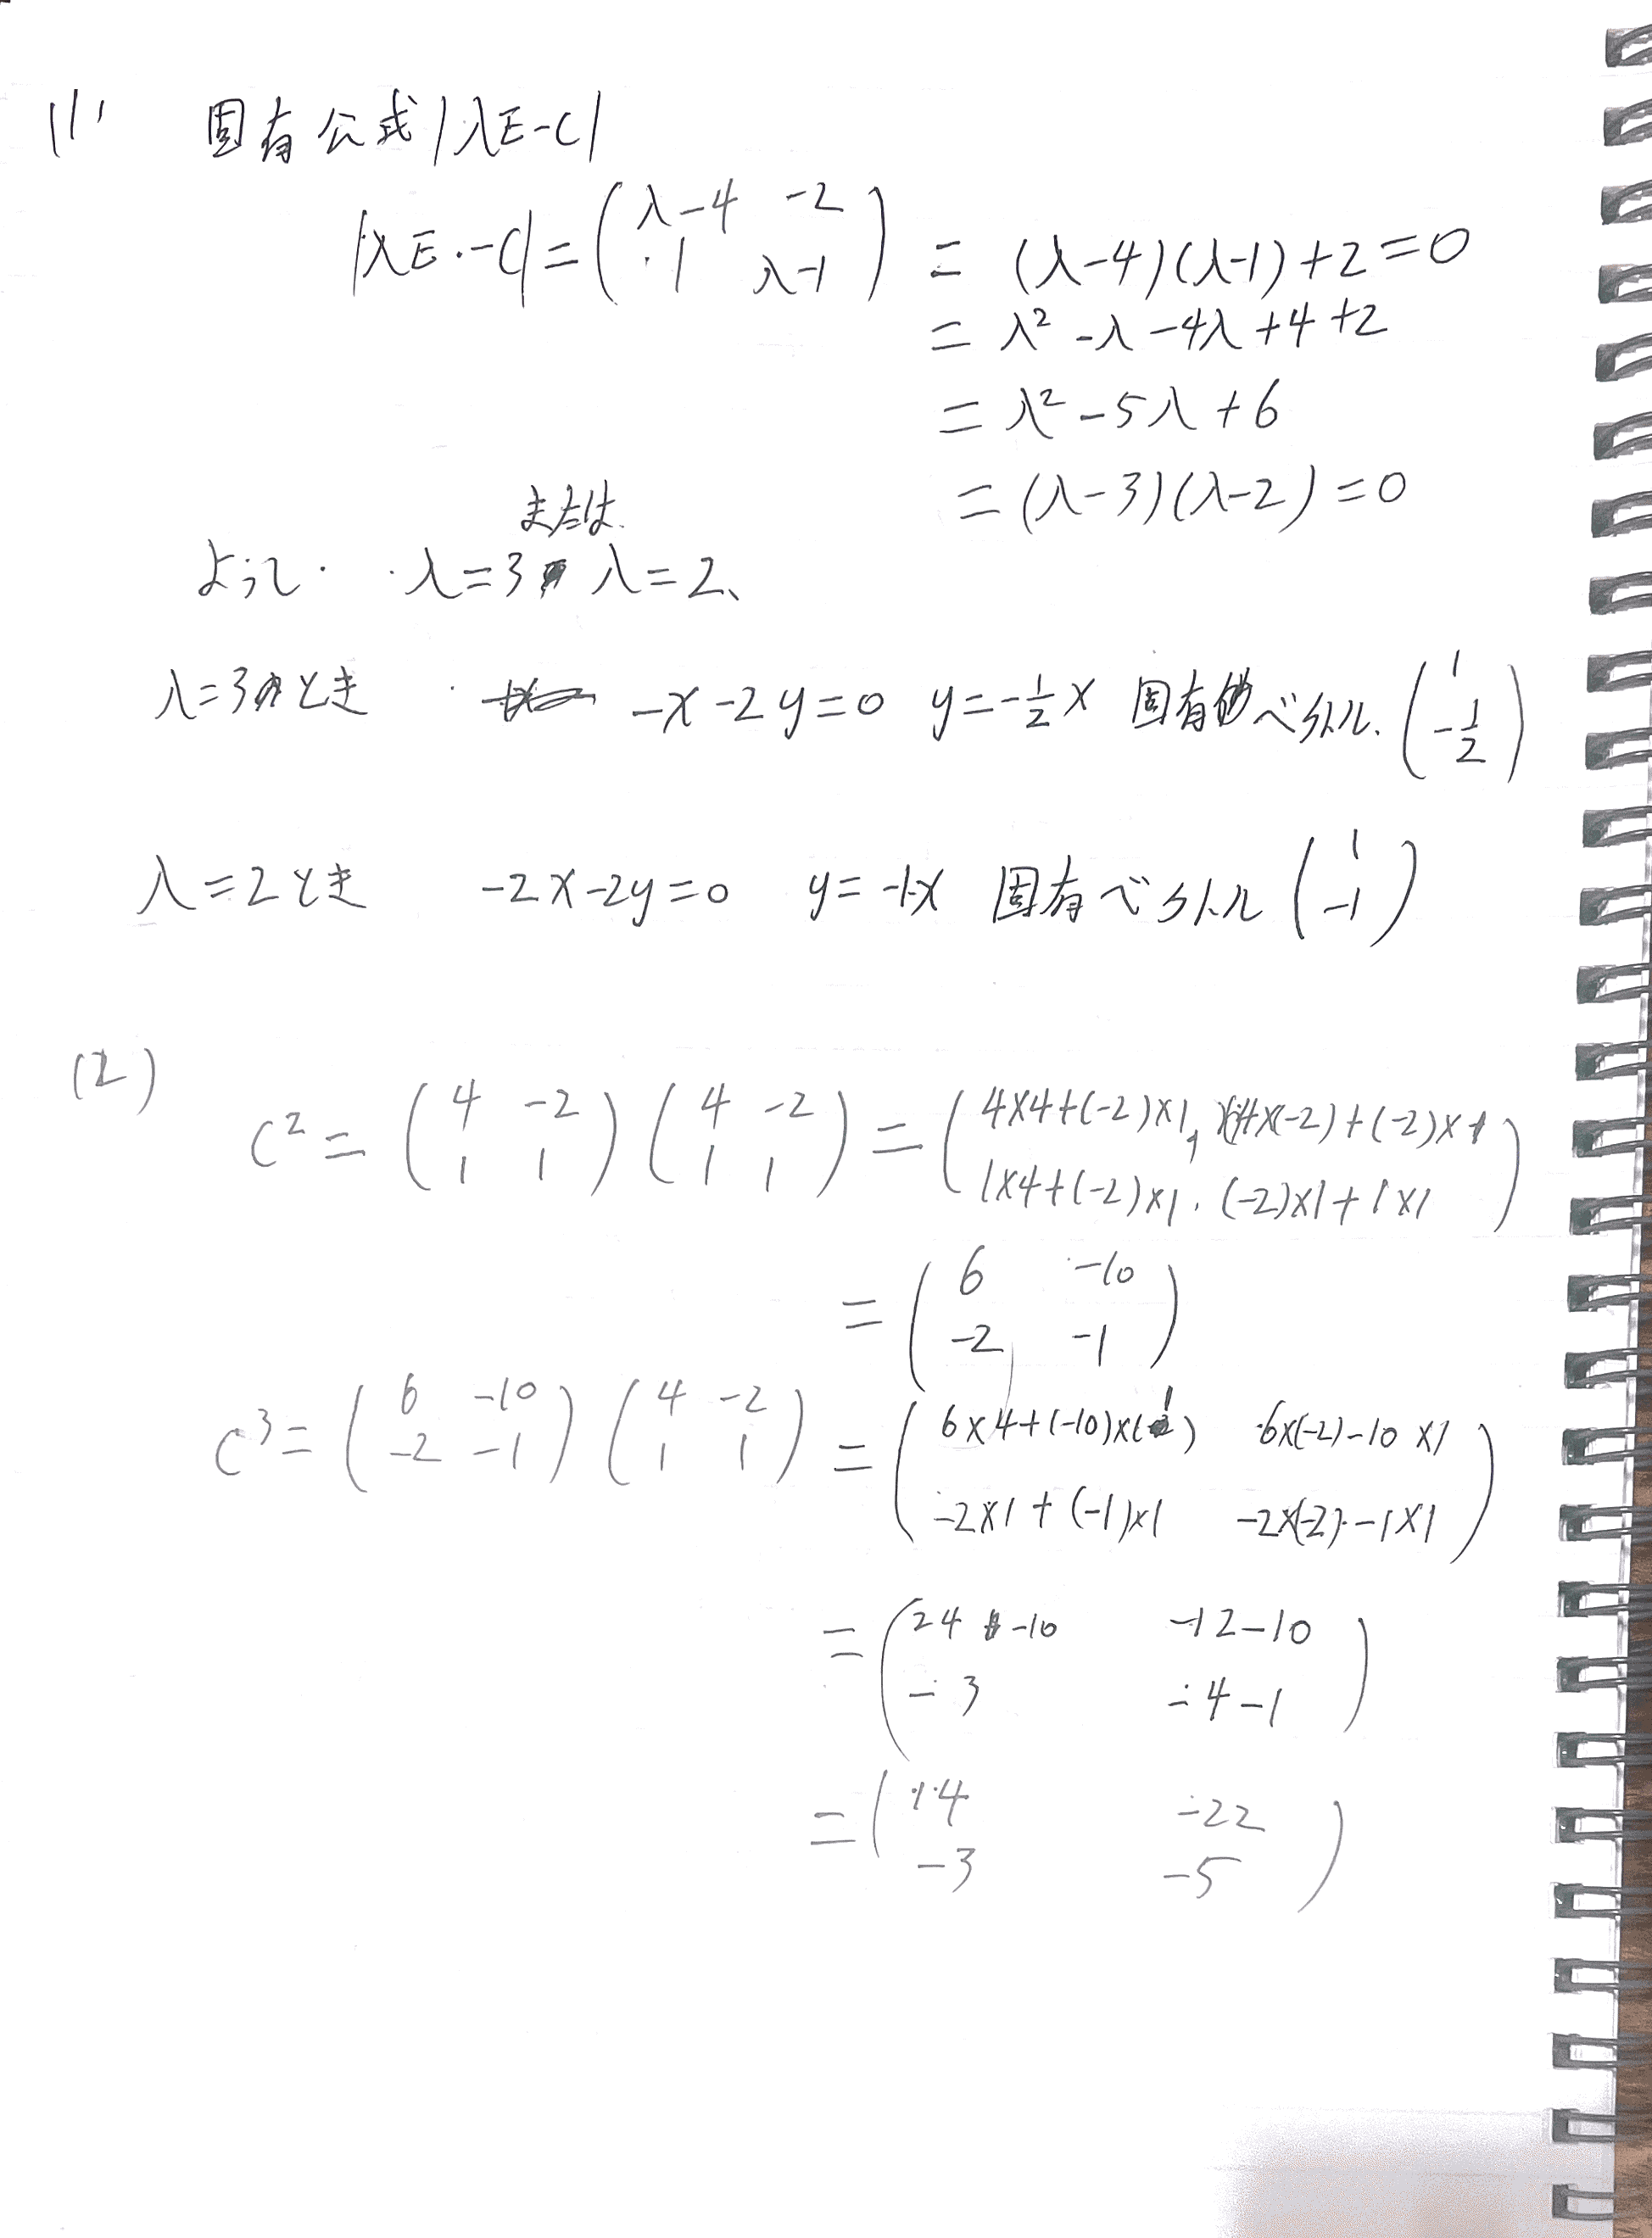 (1) 固有公式 |λE-C|
|λE-C| = (λ-4 -2
1 λ-1) = (λ-4)(λ-1)+2=0
= λ² -λ -4λ +4 +2
= λ² -5λ +6
= (λ-3)(λ-2) =0
または
よって λ=3 λ=2、
λ=3のとき -x-2y=0 y=-1/2x 固有ベクトル (1
-1/2)
λ=2とき -2x-2y=0 y=-1x 固有ベクトル (1
-1)
(2)
C² = (4 -2
1 1) (4 -2
1 1) = (4×4+(-2)×1, 4×(-2)+(-2)×1
1×4+(-2)×1. (-2)×1+1×1)
= (6 -10
-2 -1)
C³ = (6 -10
-2 -1) (4 -2
1 1) = (6×4+(-10)×(1) 6×(-2)-10×1
-2×1+(-1)×1 -2×(-2)-1×1)
= (24 -10 -12-10
-3 -4-1)
= (14 -22
-3 -5)